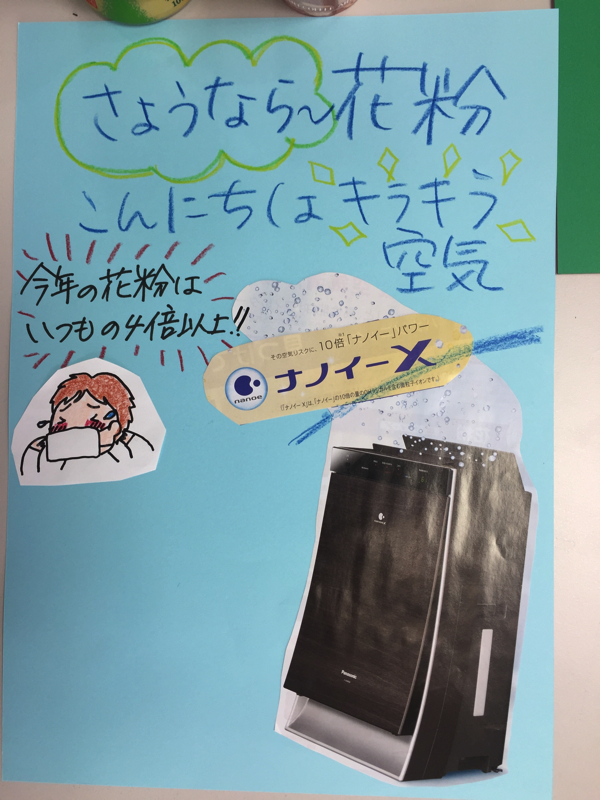 さようなら〜花粉
こんにちは キラキラ
空気
今年の花粉は
いつもの4倍以上!!
その空気リスクに、10倍「ナノイー」パワー
nanoe
ナノイーX
Panasonic